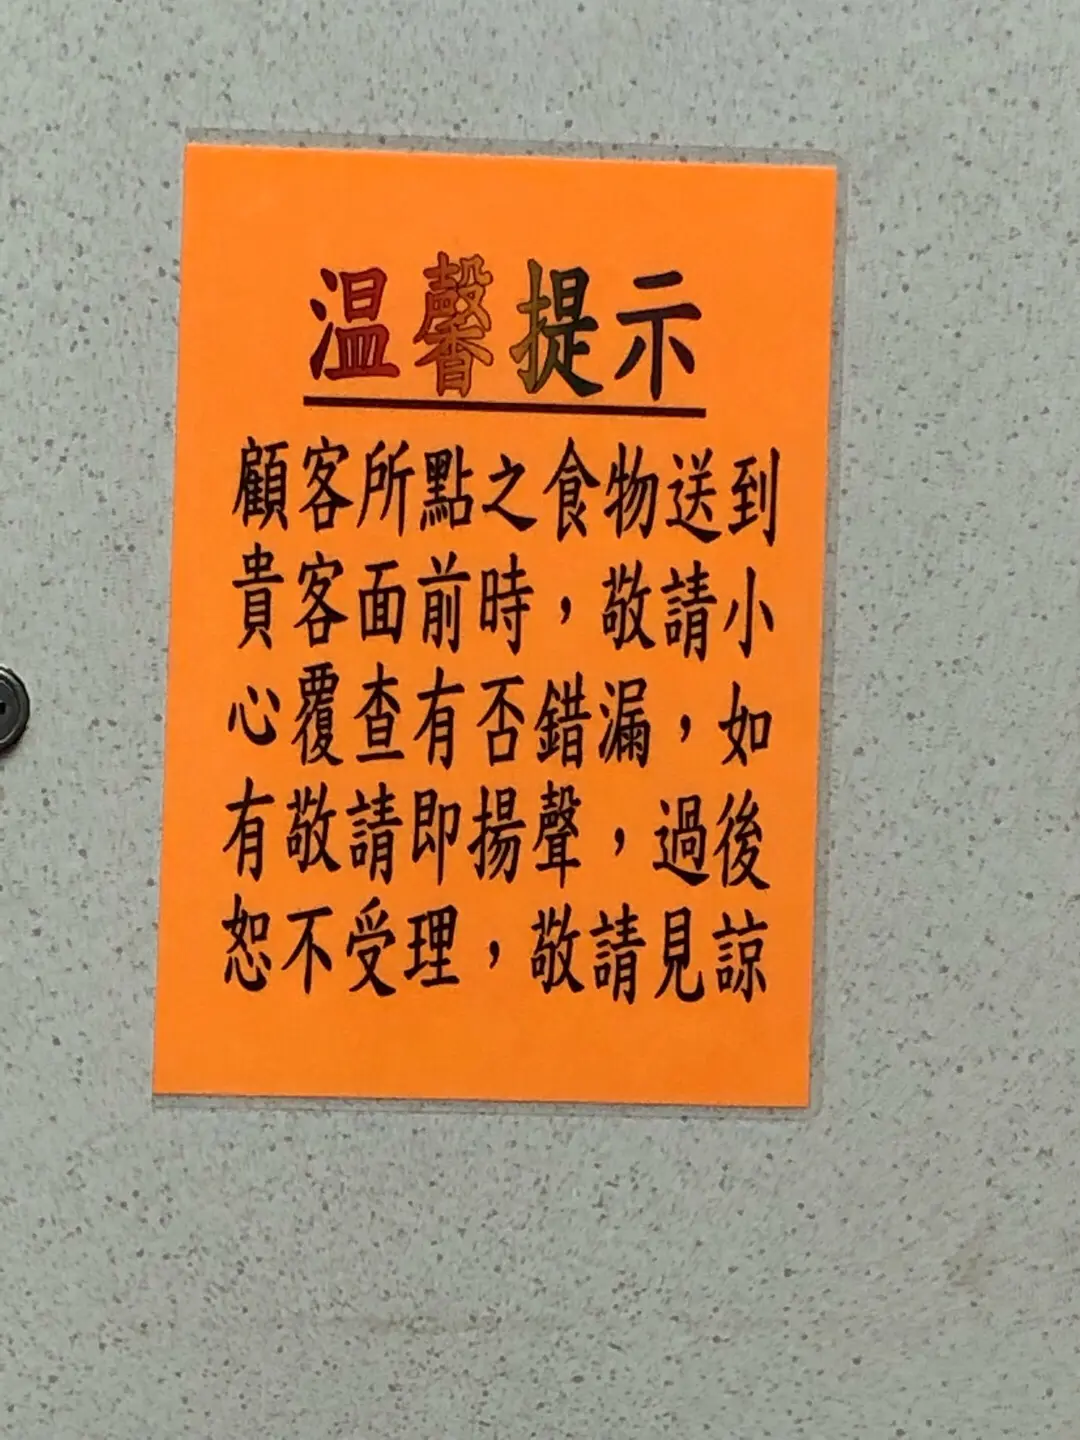 温馨提示
顧客所點之食物送到
貴客面前時，敬請小
心覆查有否錯漏，如
有敬請即揚聲，過後
恕不受理，敬請見諒